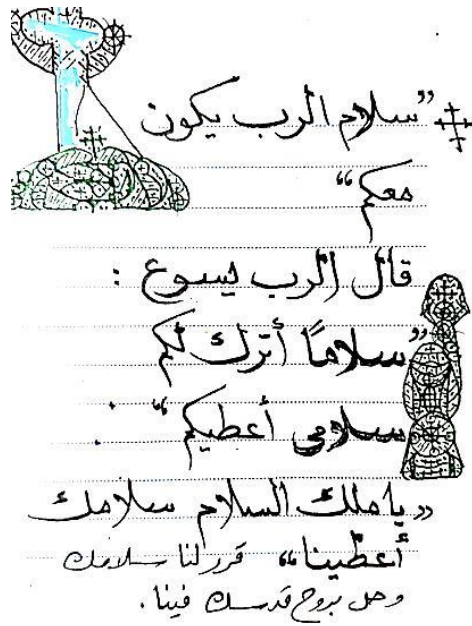 ”سلام الرب يكون
معكم“
قال الرب يسوع :
”سلامًا أترك لكم
سلامى أعطيكم“ .
”يا ملك السلام سلامك
أعطينا“ قرر لنا سلامك
وحل بروح قدسك فينا .